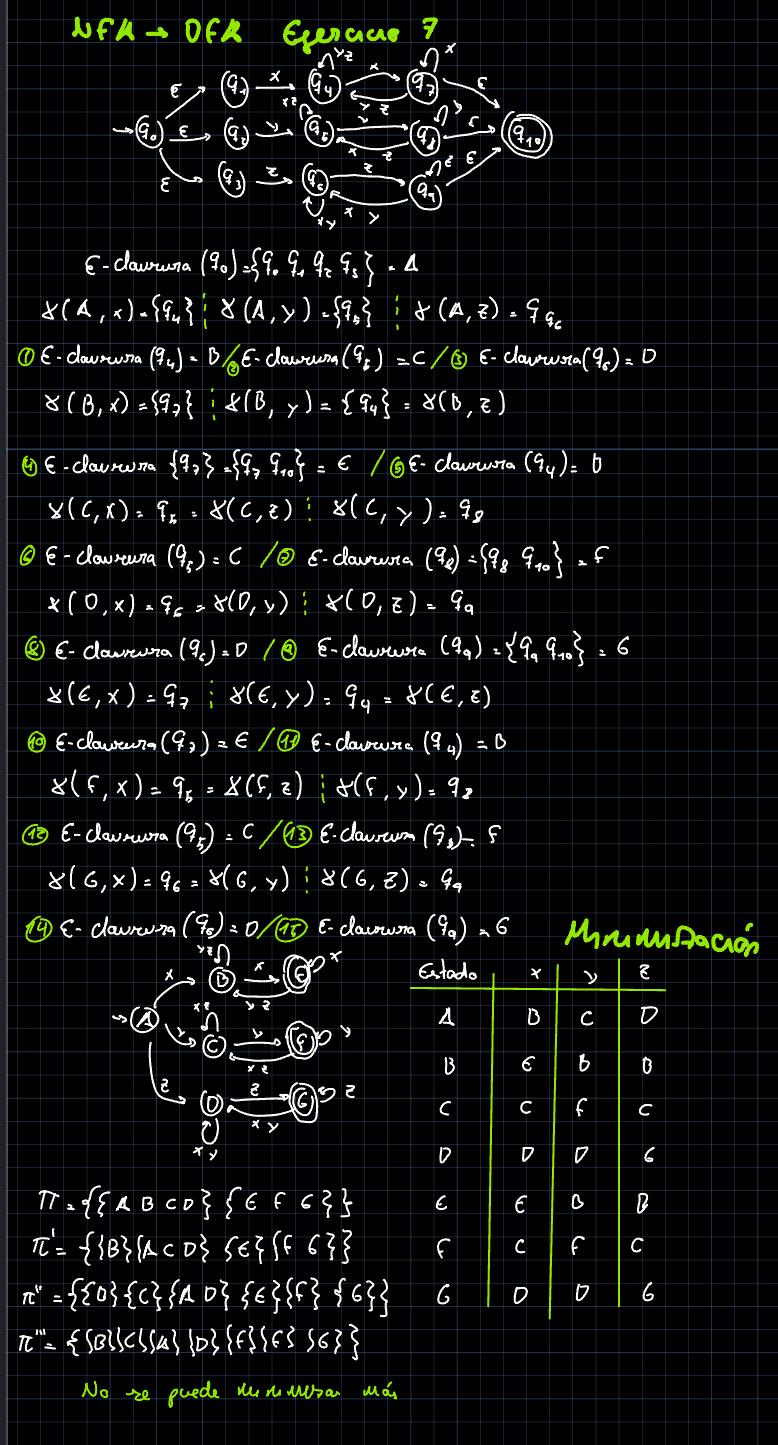 NFA → DFA Ejercicio 7
yz x
ε q1 x q4 x q7 ε
y z
xz y
→ q0 ε q2 y q5 y q8 ε q10
x z
z
ε q3 z q6 z q9 ε
xy x y
ε-clausura (q0)={q0 q1 q2 q3} = A
γ(A, x) = {q4} ¦ γ(A, y) = {q5} ¦ γ(A, z) = q q6
① ε-clausura (q4) = B / ② ε-clausura (q5) = C / ③ ε-clausura (q6) = D
γ(B, x) = {q7} ¦ γ(B, y) = {q4} = γ(B, z)
④ ε-clausura {q7} = {q7 q10} = E / ⑤ ε-clausura (q4) = B
γ(C, x) = q5 = γ(C, z) ¦ γ(C, y) = q8
⑥ ε-clausura (q5) = C / ⑦ ε-clausura (q8) = {q8 q10} = F
γ(D, x) = q6 = γ(D, y) ¦ γ(D, z) = q9
⑧ ε-clausura (q6) = D / ⑨ ε-clausura (q9) = {q9 q10} = G
γ(E, x) = q7 ¦ γ(E, y) = q4 = γ(E, z)
⑩ ε-clausura (q7) = E / ⑪ ε-clausura (q4) = B
γ(F, x) = q5 = γ(F, z) ¦ γ(F, y) = q8
⑫ ε-clausura (q5) = C / ⑬ ε-clausura (q8) = F
γ(G, x) = q6 = γ(G, y) ¦ γ(G, z) = q9
⑭ ε-clausura (q6) = D / ⑮ ε-clausura (q9) = G
Minimización
yz
x B x E x
y z
xz
→ A y C y F y
x z
z D z G z
x y
xy
Estado x y z
A B C D
B E B B
C C F C
D D D G
E E B B
F C F C
G D D G
π = {{A B C D} {E F G}}
π' = {{B}{A C D} {E}{F G}}
π'' = {{B}{C}{A D} {E}{F} {G}}
π''' = {{B}{C}{A}{D}{E}{F}{G}}
No se puede minimizar más